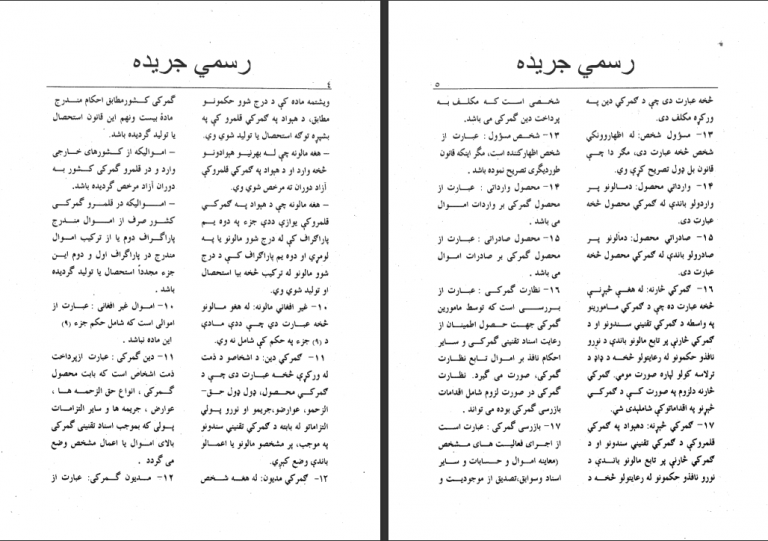 رسمي جريده
٤
ویشتمه ماده کې د درج شوو حکمونو
مطابق، د هېواد په گمرکي قلمرو کې په
بشپړه توگه استحصال يا توليد شوي وي.
– هغه مالونه چې له بهرنيو هېوادونو
څخه وارد او د هېواد په گمرکي قلمروکې
آزاد دوران ته مرخص شوي وي.
– هغه مالونه چې د هېواد په گمرکي
قلمروکې يوازې ددې جزء په دوه يم
پاراگراف کې له درج شوو مالونو يا په
لومړي او دوه يم پاراگراف کې د درج
شوو مالونو له ترکيب څخه بيا استحصال
او توليد شوي وي.
۱۰– غير افغاني مالونه: له هغو مالونو
څخه عبارت دي چې ددې مادې
د (۹) جزء په حکم کې شامل نه وي.
۱۱– گمرکي دين: د اشخاصو د ذمت
له ورکړې څخه عبارت دی چې د
گمرکي محصول، ډول ډول حق-
الزحمو، عوارضو، جريمو او نورو پولي
التزاماتو له بابته د گمرکي تقنيني سندونو
په موجب، پر مشخصو مالونو يا اعمالو
باندې وضع کېږي.
۱۲– گمرکي مديون: له هغه شخص
گمرکی کشورمطابق احکام مندرج
مادهٔ بيست ونهم اين قانون استحصال
يا توليد گرديده باشد.
– امواليکه از کشورهای خارجی
وارد و در قلمرو گمرکی کشور به
دوران آزاد مرخص گرديده باشد.
– امواليکه در قلمرو گمرکی
کشور صرف از اموال مندرج
پاراگراف دوم يا از ترکيب اموال
مندرج در پاراگراف اول و دوم اين
جزء مجدداً استحصال يا توليد گرديده
باشد .
۱۰– اموال غير افغانی : عبارت از
اموالی است که شامل حکم جزء (۹)
اين ماده نباشد .
۱۱– دين گمرکی : عبارت ازپرداخت
ذمت اشخاص است که بابت محصول
گمرکی ، انواع حق الزحمه ها ،
عوارض ، جريمه ها و ساير التزامات
پولی که بموجب اسناد تقنينی گمرکی
بالای اموال يا اعمال مشخص وضع
می گردد .
۱۲– مديون گمرکی: عبارت از
رسمي جريده
٥
څخه عبارت دی چې د گمرکي دين په
ورکړه مکلف دی.
۱۳– مسؤول شخص: له اظهاروونکي
شخص څخه عبارت دی، مگر دا چې
قانون بل ډول تصريح کړي وي.
۱۴– وارداتي محصول: دمالونو پر
واردولو باندې له گمرکي محصول څخه
عبارت دی.
۱۵– صادراتي محصول: دمالونو پر
صادرولو باندې له گمرکي محصول څخه
عبارت دی.
۱۶– گمرکي څارنه: له هغې څېړنې
څخه عبارت ده چې د گمرکي مامورينو
په واسطه د گمرکي تقنيني سندونو او د
گمرکي څارنې پر تابع مالونو باندې د نورو
نافذو حکمونو له رعايتولو څخه د ډاډ د
ترلاسه کولو لپاره صورت مومي. گمرکي
څارنه دلزوم په صورت کې د گمرکي
څېړنو په اقداماتوکې شاملېدی شي.
۱۷– گمرکي څېړنه: دهېواد په گمرکي
قلمروکې د گمرکي تقنيني سندونو او د
گمرکي څارنې پر تابع مالونو باندې د
نورو نافذو حکمونو له رعايتولو څخه د
شخصی است که مکلف به
پرداخت دين گمرکی می باشد.
۱۳– شخص مسؤول : عبارت از
شخص اظهارکننده است، مگر اينکه قانون
طورديگری تصريح نموده باشد.
۱۴– محصول وارداتی : عبارت از
محصول گمرکی بر واردات اموال
می باشد .
۱۵– محصول صادراتی : عبارت از
محصول گمرکی بر صادرات اموال
می باشد .
۱۶– نظارت گمرکی : عبارت از
بررسی است که توسط مامورين
گمرکی جهت حصول اطمينان از
رعايت اسناد تقنينی گمرکی و ساير
احکام نافذ بر اموال تابع نظارت
گمرکی، صورت می گيرد. نظارت
گمرکی در صورت لزوم شامل اقدامات
بازرسی گمرکی بوده می تواند .
۱۷– بازرسی گمرکی : عبارت است
از اجرای فعاليت های مشخص
(معاينه اموال و حسابات و ساير
اسناد وسوابق،تصديق از موجوديت و